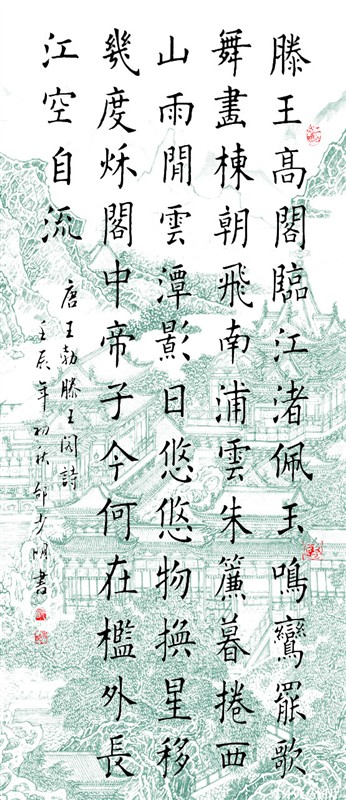 滕王高閣臨江渚佩玉鳴鸞罷歌
舞畫棟朝飛南浦雲朱簾暮捲西
山雨閒雲潭影日悠悠物換星移
幾度秌閣中帝子今何在檻外長
江空自流
唐王勃滕王閣詩
壬辰年初秋 明書